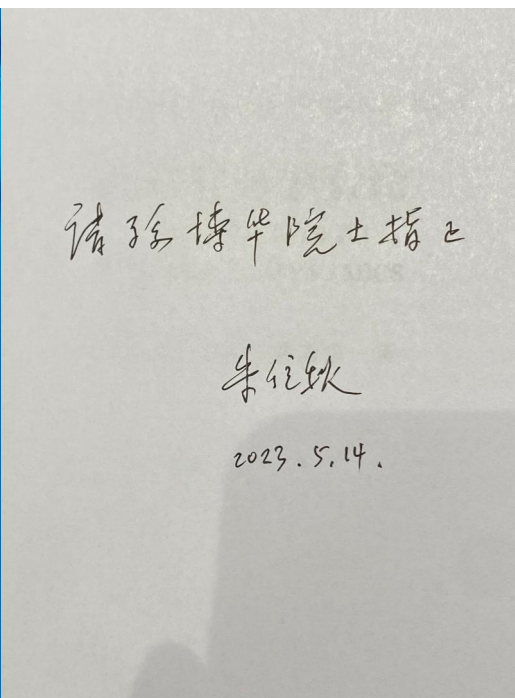 请孙博华院士指正
朱位秋
2023.5.14.